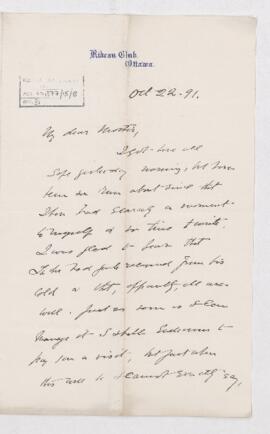 Rideau Club,
Ottawa.
Oct 22-91.
My dear
I got here all
safe yesterday morning, but have
been so run about since that
I have had scarcely a moment
to myself & no time to write.
I was glad to learn that
he had quite recovered from his
cold & that, apparently, all are
well. Just as soon as I can
manage it I shall endeavour to
pay you a visit, but just when
this will be I cannot exactly say,